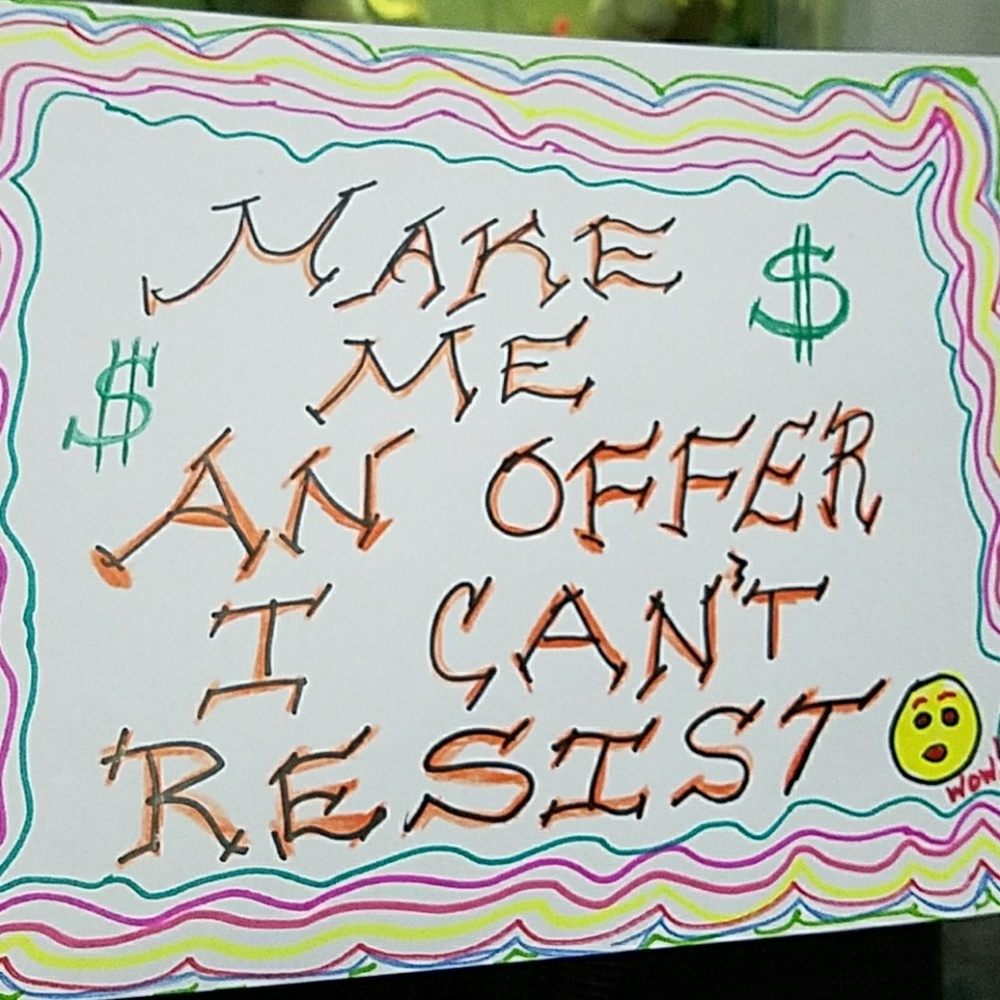 MAKE $
$ ME
AN OFFER
I CAN'T
RESIST
WOW!